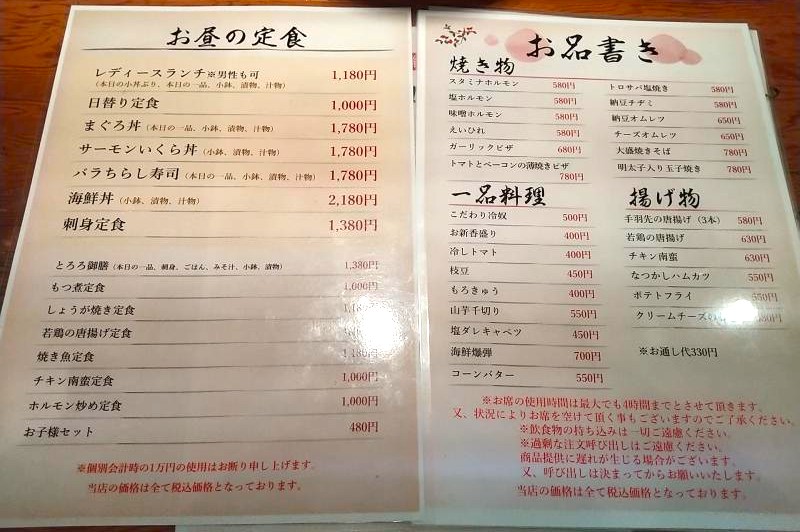 お昼の定食
レディースランチ※男性も可 1,180円
(本日の小丼ぶり、本日の一品、小鉢、漬物、汁物)
日替り定食 1,000円
まぐろ丼(本日の一品、小鉢、漬物、汁物) 1,780円
サーモンいくら丼(小鉢、漬物、汁物) 1,780円
バラちらし寿司(本日の一品、小鉢、漬物、汁物) 1,780円
海鮮丼(小鉢、漬物、汁物) 2,180円
刺身定食 1,380円
とろろ御膳(本日の一品、刺身、ごはん、みそ汁、小鉢、漬物) 1,380円
もつ煮定食 1,000円
しょうが焼き定食
若鶏の唐揚げ定食
焼き魚定食
チキン南蛮定食 1,060円
ホルモン炒め定食 1,000円
お子様セット 480円
※個別会計時の1万円の使用はお断り申し上げます。
当店の価格は全て税込価格となっております。
お品書き
焼き物
スタミナホルモン 580円
塩ホルモン 580円
味噌ホルモン 580円
えいひれ 580円
ガーリックピザ 680円
トマトとベーコンの薄焼きピザ
780円
トロサバ塩焼き 580円
納豆チヂミ 580円
納豆オムレツ 650円
チーズオムレツ 650円
大盛焼きそば 780円
明太子入り玉子焼き 780円
一品料理
こだわり冷奴 500円
お新香盛り 400円
冷しトマト 400円
枝豆 450円
もろきゅう 400円
山芋千切り 550円
塩ダレキャベツ 450円
海鮮爆弾 700円
コーンバター 550円
揚げ物
手羽先の唐揚げ(3本) 580円
若鶏の唐揚げ 630円
チキン南蛮 630円
なつかしハムカツ 550円
ポテトフライ 550円
クリームチーズの
※お通し代330円
※お席の使用時間は最大でも4時間までとさせて頂きます。
又、状況によりお席を空けて頂く事もございますのでご了承ください。
※飲食物の持ち込みは一切ご遠慮ください。
※過剰な注文呼び出しはご遠慮ください。
商品提供に遅れが生じる場合がございます。
又、呼び出しは決まってからお願いいたします。
当店の価格は全て税込価格となっております。